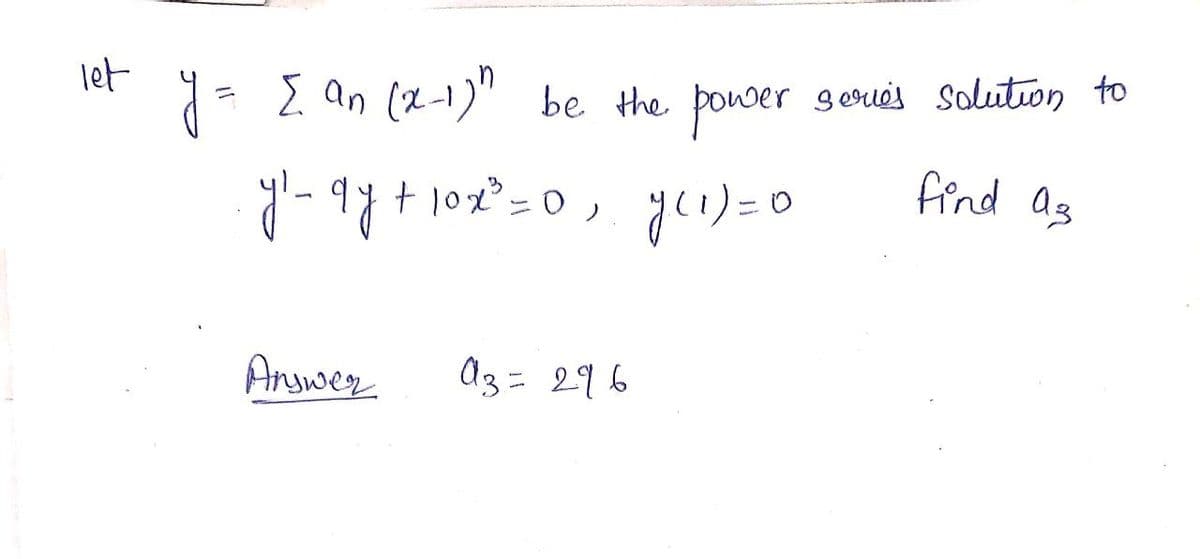 let y = Σ an (x-1)ⁿ be the power series solution to
y' - 9y + 10x³ = 0, y(1) = 0 find a₃
Answer a₃ = 296